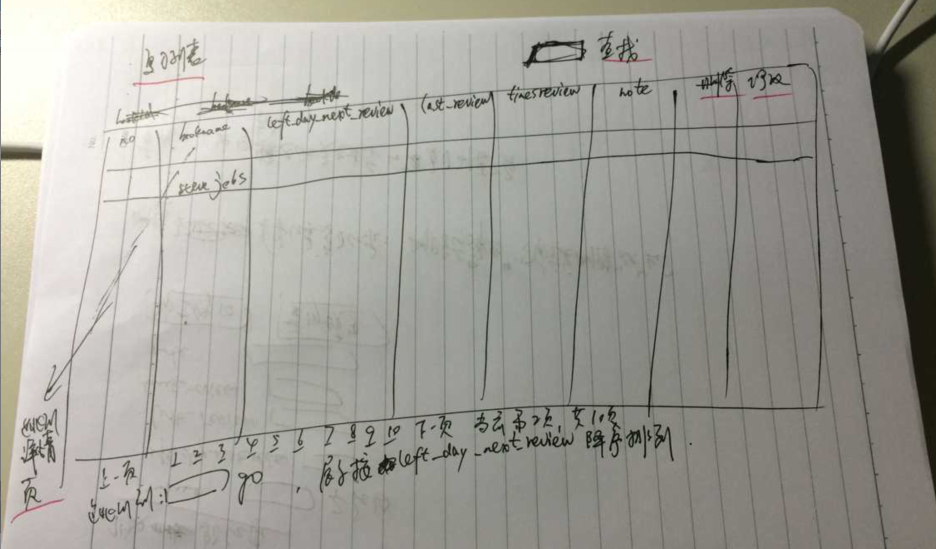 查找
no bookname left_day_next_review last_review times review note 删除 修改
steve jobs
进入到
详情
页
上一页 1 2 3 4 5 6 7 8 9 10 下一页 当前第2页 共10页
进入到: go , 展示按 left_day_next_review 降序排列.